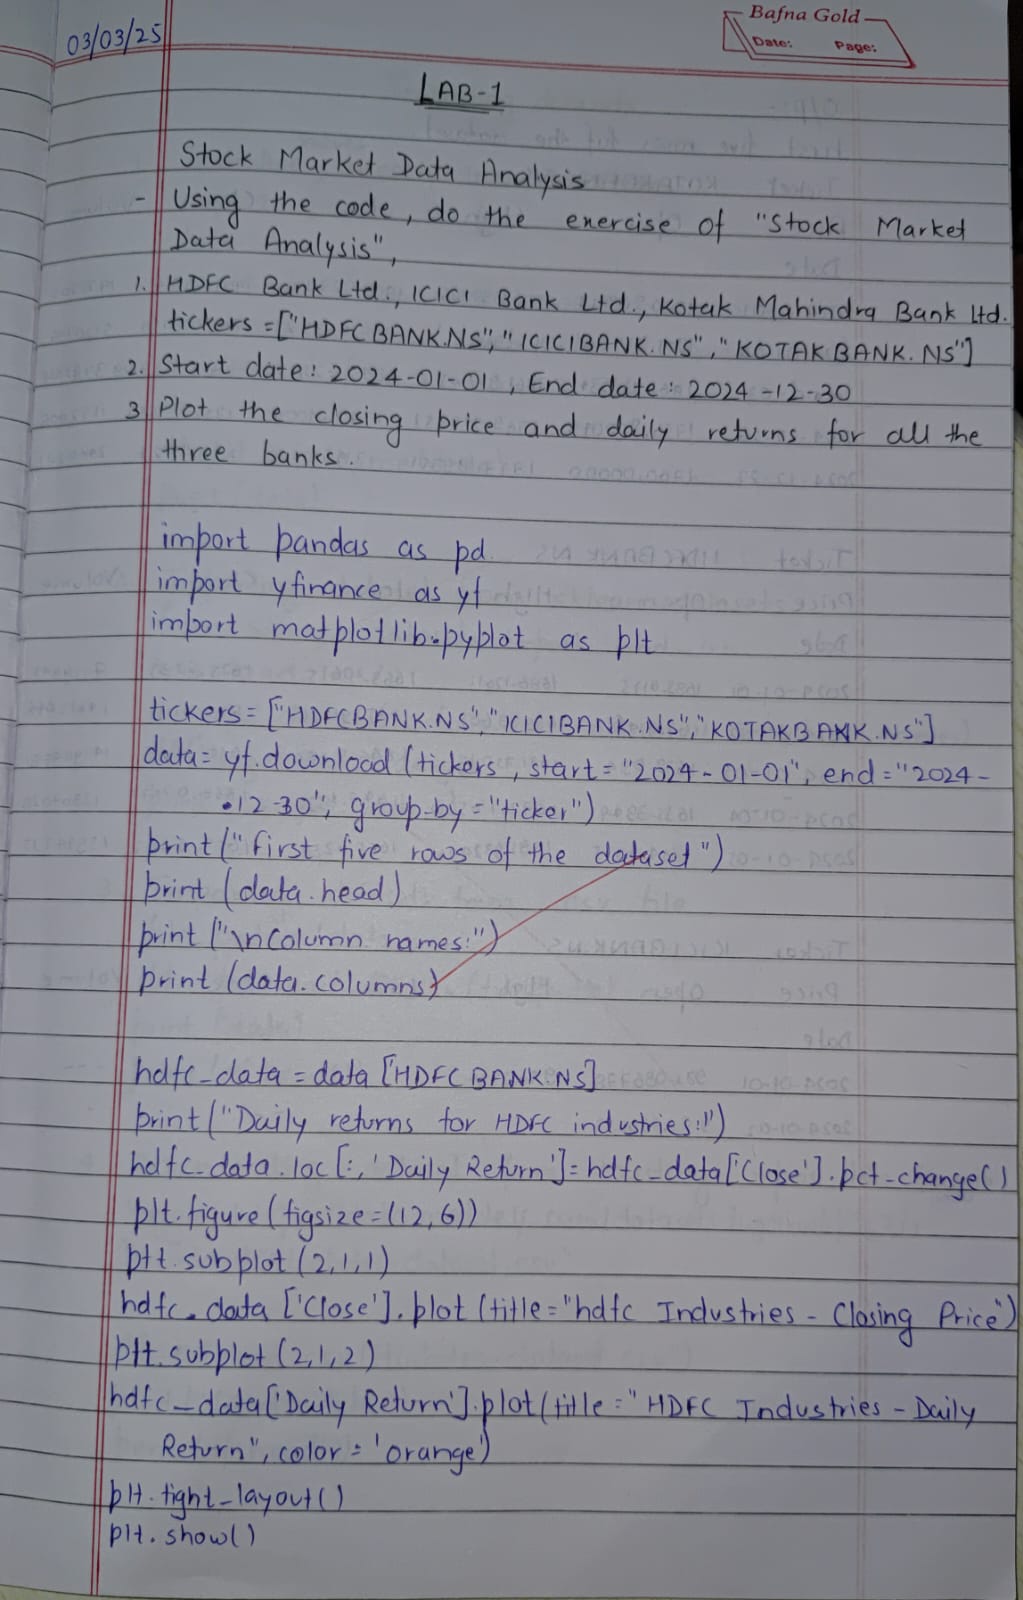 Bafna Gold
Date: Page:
03/03/25
LAB-1
Stock Market Data Analysis
- Using the code, do the exercise of "Stock Market
Data Analysis",
1. HDFC Bank Ltd., ICICI Bank Ltd., Kotak Mahindra Bank Ltd.
tickers = ["HDFCBANK.NS", "ICICIBANK.NS", "KOTAKBANK.NS"]
2. Start date: 2024-01-01, End date: 2024-12-30
3 Plot the closing price and daily returns for all the
three banks.
import pandas as pd
import yfinance as yf
import matplotlib.pyplot as plt
tickers = ["HDFCBANK.NS", "ICICIBANK.NS", "KOTAKBANK.NS"]
data = yf.download (tickers, start = "2024-01-01", end = "2024-
12-30", group-by = "ticker")
print ("first five rows of the dataset")
print (data.head)
print ("\nColumn names:")
print (data.columns)
hdfc_data = data [HDFCBANK.NS]
print ("Daily returns for HDFC industries:")
hdfc_data.loc[:, 'Daily Return'] = hdfc_data['Close'].pct_change()
plt.figure (figsize = (12,6))
plt.subplot (2,1,1)
hdfc_data ['Close'].plot (title = "hdfc Industries - Closing Price")
plt.subplot (2,1,2)
hdfc_data ['Daily Return'].plot (title = "HDFC Industries - Daily
Return", color = 'orange')
plt.tight_layout()
plt.show()